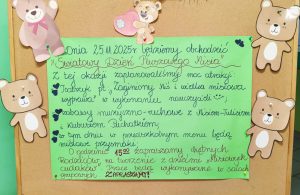 Dnia 25.11.2025r będziemy obchodzić
Światowy Dzień Pluszowego Misia
Z tej okazji zaplanowaliśmy moc atrakcji:
Teatrzyk pt. „Zaginiony Miś i wielka misiowa
wyprawa" w wykonaniu nauczycieli
zabawy muzyczno-ruchowe z Misiem-Tulisiem
i Kubusiem Puchatkiem
w tym dniu w przedszkolnym menu będą
misiowe przysmaki
O godzinie 15 zapraszamy chętnych
Rodziców na tworzenie z dziećmi „Misiowych
cudaków" Prace będą wykonywane w salach
ZAPRASZAMY!